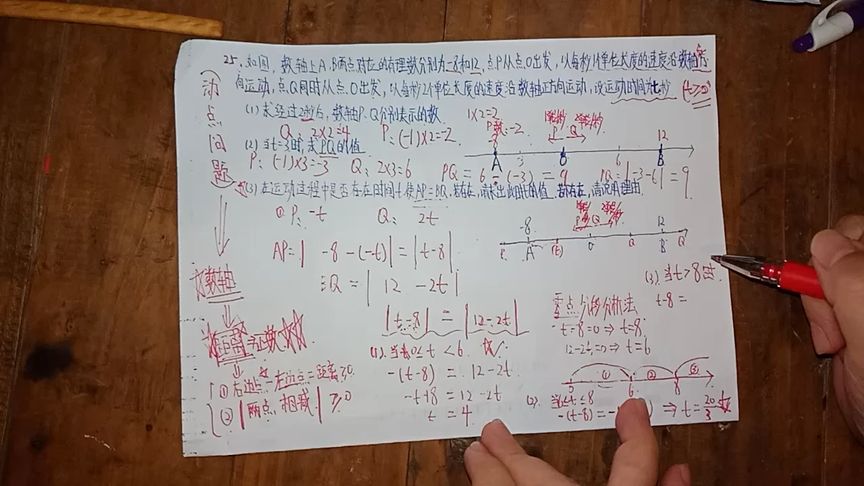 25、如图,数轴上A、B两点对应的有理数分别为-8和12,点P从点O出发,以每秒1个单位长度的速度沿数轴负方
向运动,点Q同时从点O出发,以每秒2个单位长度的速度沿数轴正方向运动,设运动时间为t秒 (t>0)
(1) 求经过2秒后,数轴P、Q分别表示的数.
1×2=2
Q: 2×2=4 P: (-1)×2=-2
P数=-2
(2) 当t=3时,求PQ的值
P: (-1)×3=-3 Q: 2×3=6 PQ = 6-(-3) = 9 PQ=|-3-6|=9
-8 P Q 12
A -3 0 6 B
(3) 在运动过程中是否存在时间t使AP=BQ,若存在,请求出此时t的值,若不存在,请说明理由
① P: -t Q: 2t
AP=| -8-(-t)|=|t-8|
BQ=| 12 -2t|
-8 P Q 12
P A (t) 0 Q B Q
|t-8| = |12-2t|
(1). 当0<t<6
-(t-8) = 12-2t
-t+8 = 12-2t
t = 4
零点分段分析法
t-8=0⇒t=8
12-2t=0⇒t=6
0 ① 6 ② 8 ③
(2). 当6≤t≤8
-(t-8)=- ⇒ t=20/3
(3). 当t>8时
t-8=
动点问题
数轴
距离
① 右边点-左边点=距离≥0
② |两点相减|≥0